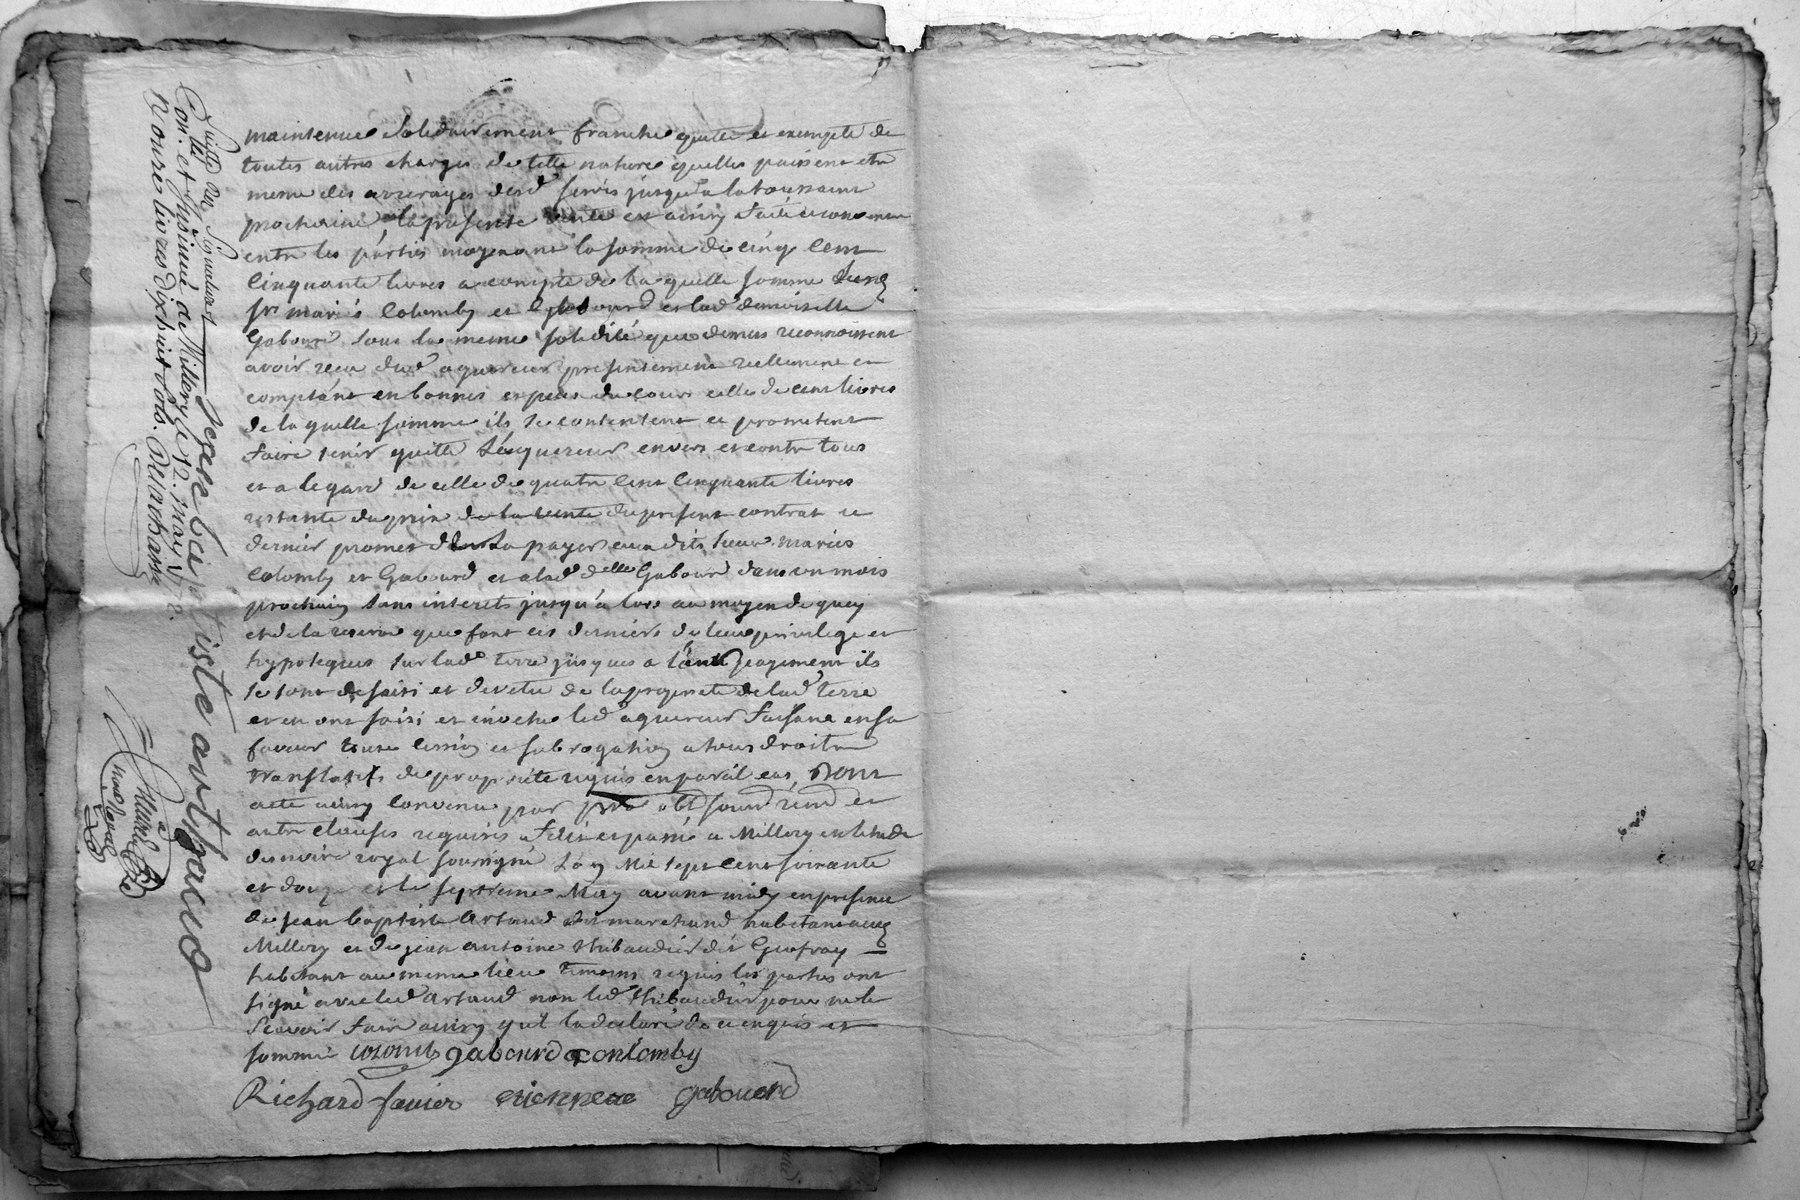 maintenue solidairement franche quitte et exempte de
toutes autres charges de telle nature quelles puissent etre
meme des arrerages desd servis jusqu'a la toussaint
prochaine, la presente vente est ainsy faite et convenue
entre les parties moyenant la somme de cinq cent
cinquante livres a compte de la quelle somme
mariés Colomby et gabourd et lad demoiselle
Gabourd sous la meme solidité que dessus reconnoissent
avoir recu dud aquereur presentement reellement et
comptant en bonnes especes du cours celle de cent livres
de la quelle somme ils se contentent et promettent
faire tenir quitte L'aquereur envers et contre tous
et a legard de celle de quatre cent cinquante livres
restante du prix de la vente du present contrat ce
dernier promet de la payer aux dits sieur mariés
Colomby et Gabourd et a lad delle Gabourd dans un mois
prochain sans interets jusqu'a lors au moyen de quoy
et de la reserve que font ces derniers de leur privilege et
hypoteques sur lad terre jusques a payement ils
se sont desaisi et devetu de la propriete de lad terre
et en ont saisi et led aquereur faisant en sa
faveur toute cession et subrogation a tous droits
translatifs de propriete requis en pareil cas, Dont
acte ainsy convenu par
autre clauses requises fait et passé a Millery en letude
du noire royal soussigné L'an Mil sept cent soixante
et douze et le septieme May avant midy en presence
de jean baptiste Artaud marchand habitant aud
Millery et de jean antoine thibaudier dit Guefray
habitant au meme lieu temoins requis les parties ont
signé avec led Artaud non led thibaudier pour ne le
scavoir faire ainsy qu'il la declaré de ce enquis et
sommé colomb gabourd Conlomby
Richard favier etienne gabourd
Suitte des Signatures
jean batiste artaud
Con. et Insinué à Millery le 12. may 1772.
Reçu livres dixhuit sols. Delarbasse